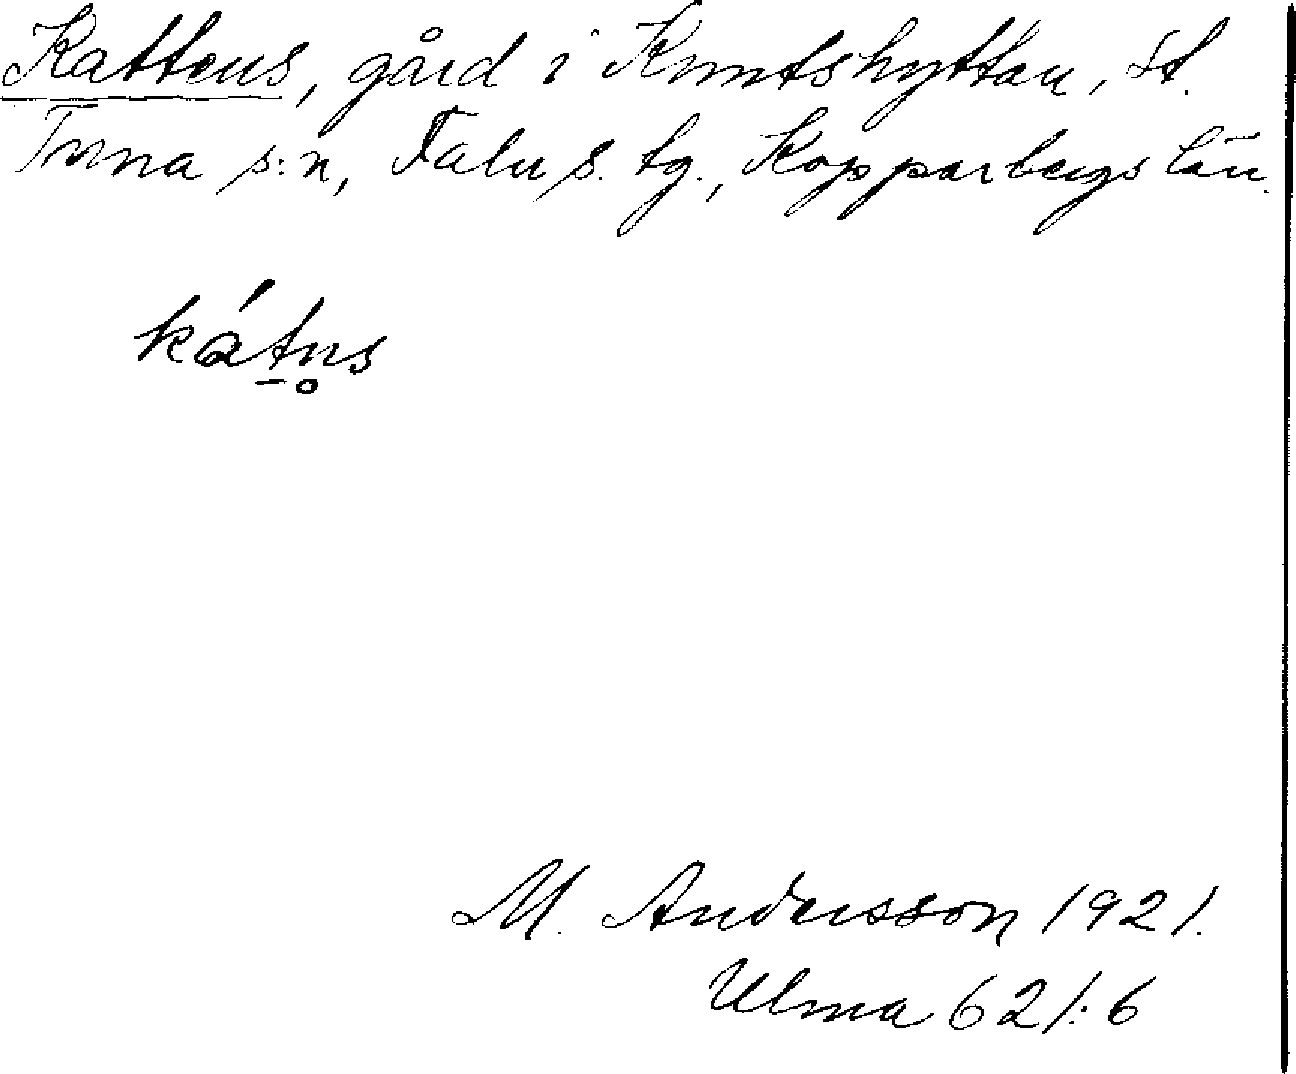 Kattens, gård i Knutshyttan, St.
Tuna s:n, Falu s. tg., Kopparbergs län.
kát̠n̥s
M. Andersson 1921.
Ulma 621:6